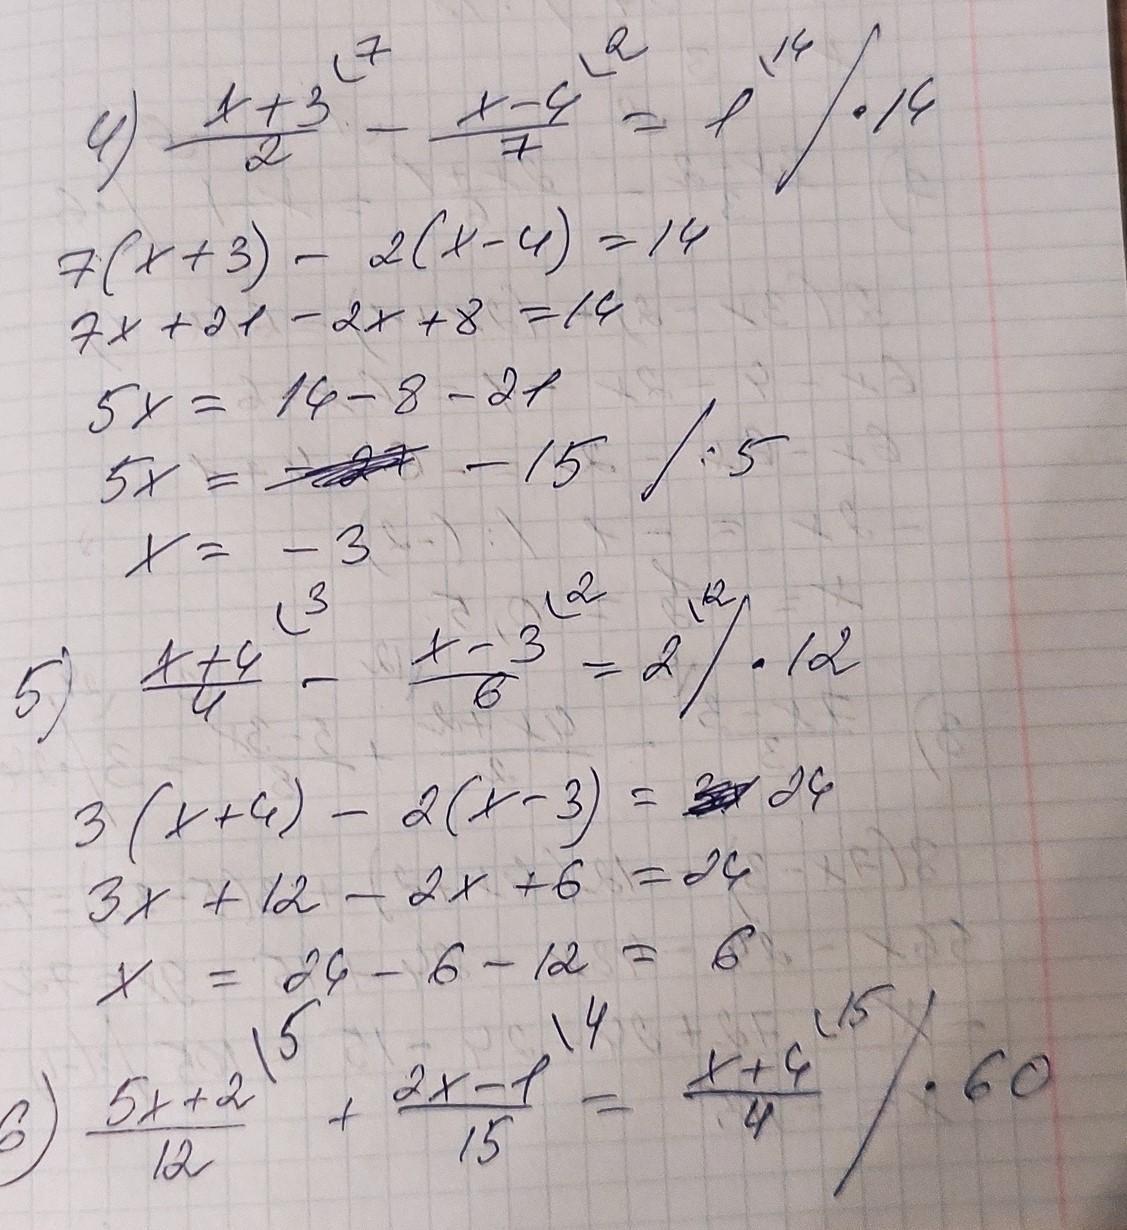 4) (x+3)/2 \7 - (x-4)/7 \2 = 1 \14 / · 14
7(x+3) - 2(x-4) = 14
7x + 21 - 2x + 8 = 14
5x = 14 - 8 - 21
5x = -15 / : 5
x = -3
5) (x+4)/4 \3 - (x-3)/6 \2 = 2 \12 / · 12
3(x+4) - 2(x-3) = 24
3x + 12 - 2x + 6 = 24
x = 24 - 6 - 12 = 6
6) (5x+2)/12 \5 + (2x-1)/15 \4 = (x+4)/4 \15 / · 60